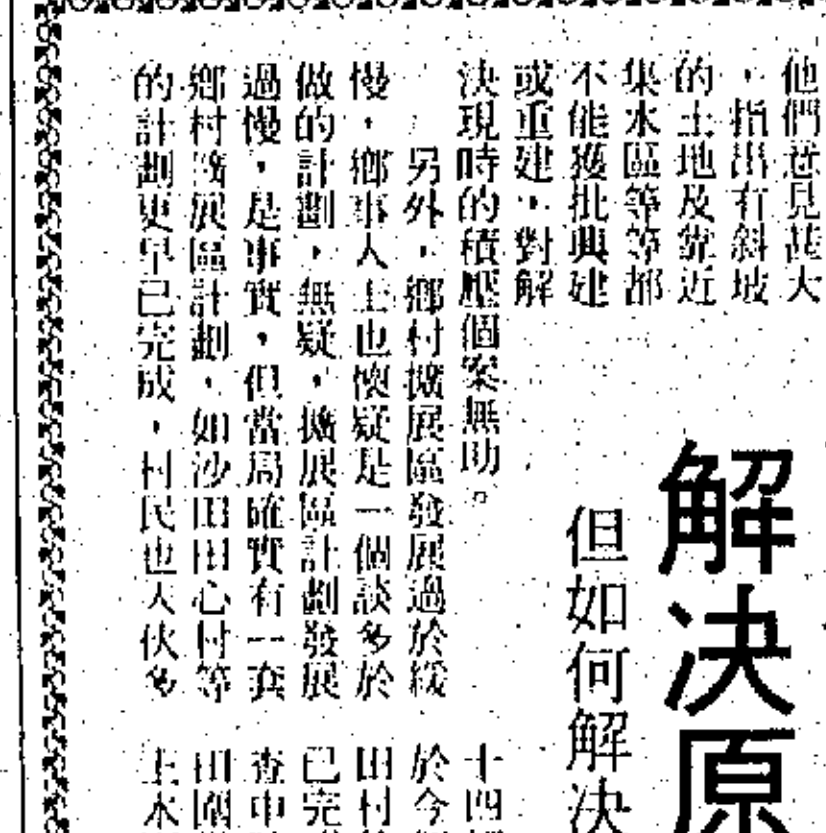 解決原
但如何解決
他們意見甚大
，指出有斜坡
的土地及靠近
集水區等等都
不能獲批興建
或重建，對解
決現時的積壓個案無助。
另外，鄉村擴展區發展過於緩
慢，鄉事人士也懷疑是一個談多於
做的計劃，無疑，擴展區計劃發展
過慢，是事實，但當局確實有一套
鄉村擴展區計劃，如沙田田心村等
的計劃更早已完成，村民也大伙多
十四
於今
田村
已完
查申
田圍
上水